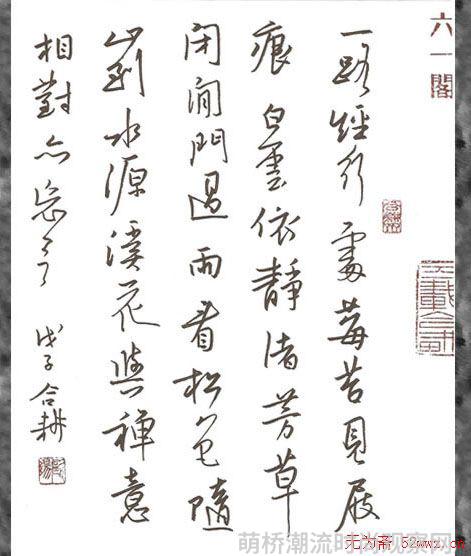 六一閣
一路經行處莓苔見屐
痕白雲依靜渚芳草
閉閒門過雨看松色隨
山到水源溪花與禪意
相對亦忘言
戊子合耕
萌桥潮流时尚观察网
无为斋 52wwz.cn